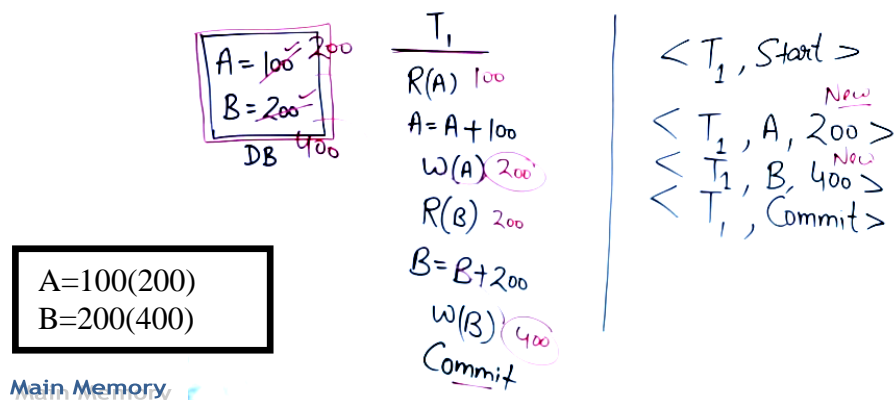 A = 100 200
B = 200
400
DB
T1
R(A) 100
A = A + 100
W(A) 200
R(B) 200
B = B + 200
W(B) 400
Commit
< T1, Start >
New
< T1, A, 200 >
New
< T1, B, 400 >
< T1, Commit >
A=100(200)
B=200(400)
Main Memory